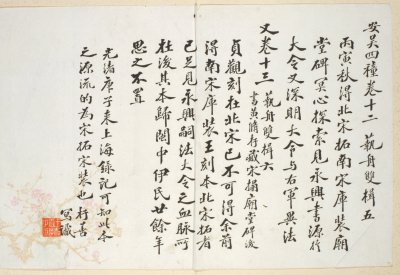 安吳四種卷十二 藝舟雙楫五
丙寅秋得北宋拓南宋庫裝廟
堂碑冥心探索見永興書源於
大令又深明大令与右軍異法
又卷十三 藝舟雙楫六
書黃脩存藏宋搨廟堂碑後
貞觀刻在北宋已不可得余前
得南宋庫裝王刻本北宋拓者
已足見永興嗣法大令之血脉所
在後其本歸閩中伊氏廿餘年
思之不置
光緒庚子來上海錄記可知此本
之源流的為宋拓宋裝也